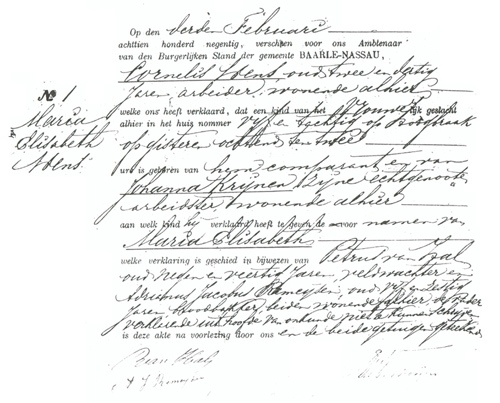 Op den derden Februari
achttien honderd negentig, verscheen voor ons Ambtenaar
van den Burgerlijken Stand der gemeente BAARLE-NASSAU,
Cornelis Adens, oud twee en dertig
jaren, arbeider, wonende alhier
welke ons heeft verklaard, dat een kind van het Vrouwelijk geslacht
alhier in het huis nommer vijf en tachtig op
op gisteren ochtend ten twee
ure is geboren van hem comparant en van
Johanna Krijnen, zijne echtgenoote
arbeidster, wonende alhier
aan welk kind hij verklaard heeft te geven de voornamen van
Maria Elisabeth
welke verklaring is geschied in bijwezen van Petrus van
oud negen en veertig jaren, veldwachter en
Adrianus Jacobus Romeijnen, oud vijf en zestig
jaren, beiden wonende alhier, de vader
verklarende uit hoofde van onkunde niet te kunnen schrijven
is deze akte na voorlezing door ons en de beide getuigen geteekend
No 1
Maria
Elisabeth
Adens.